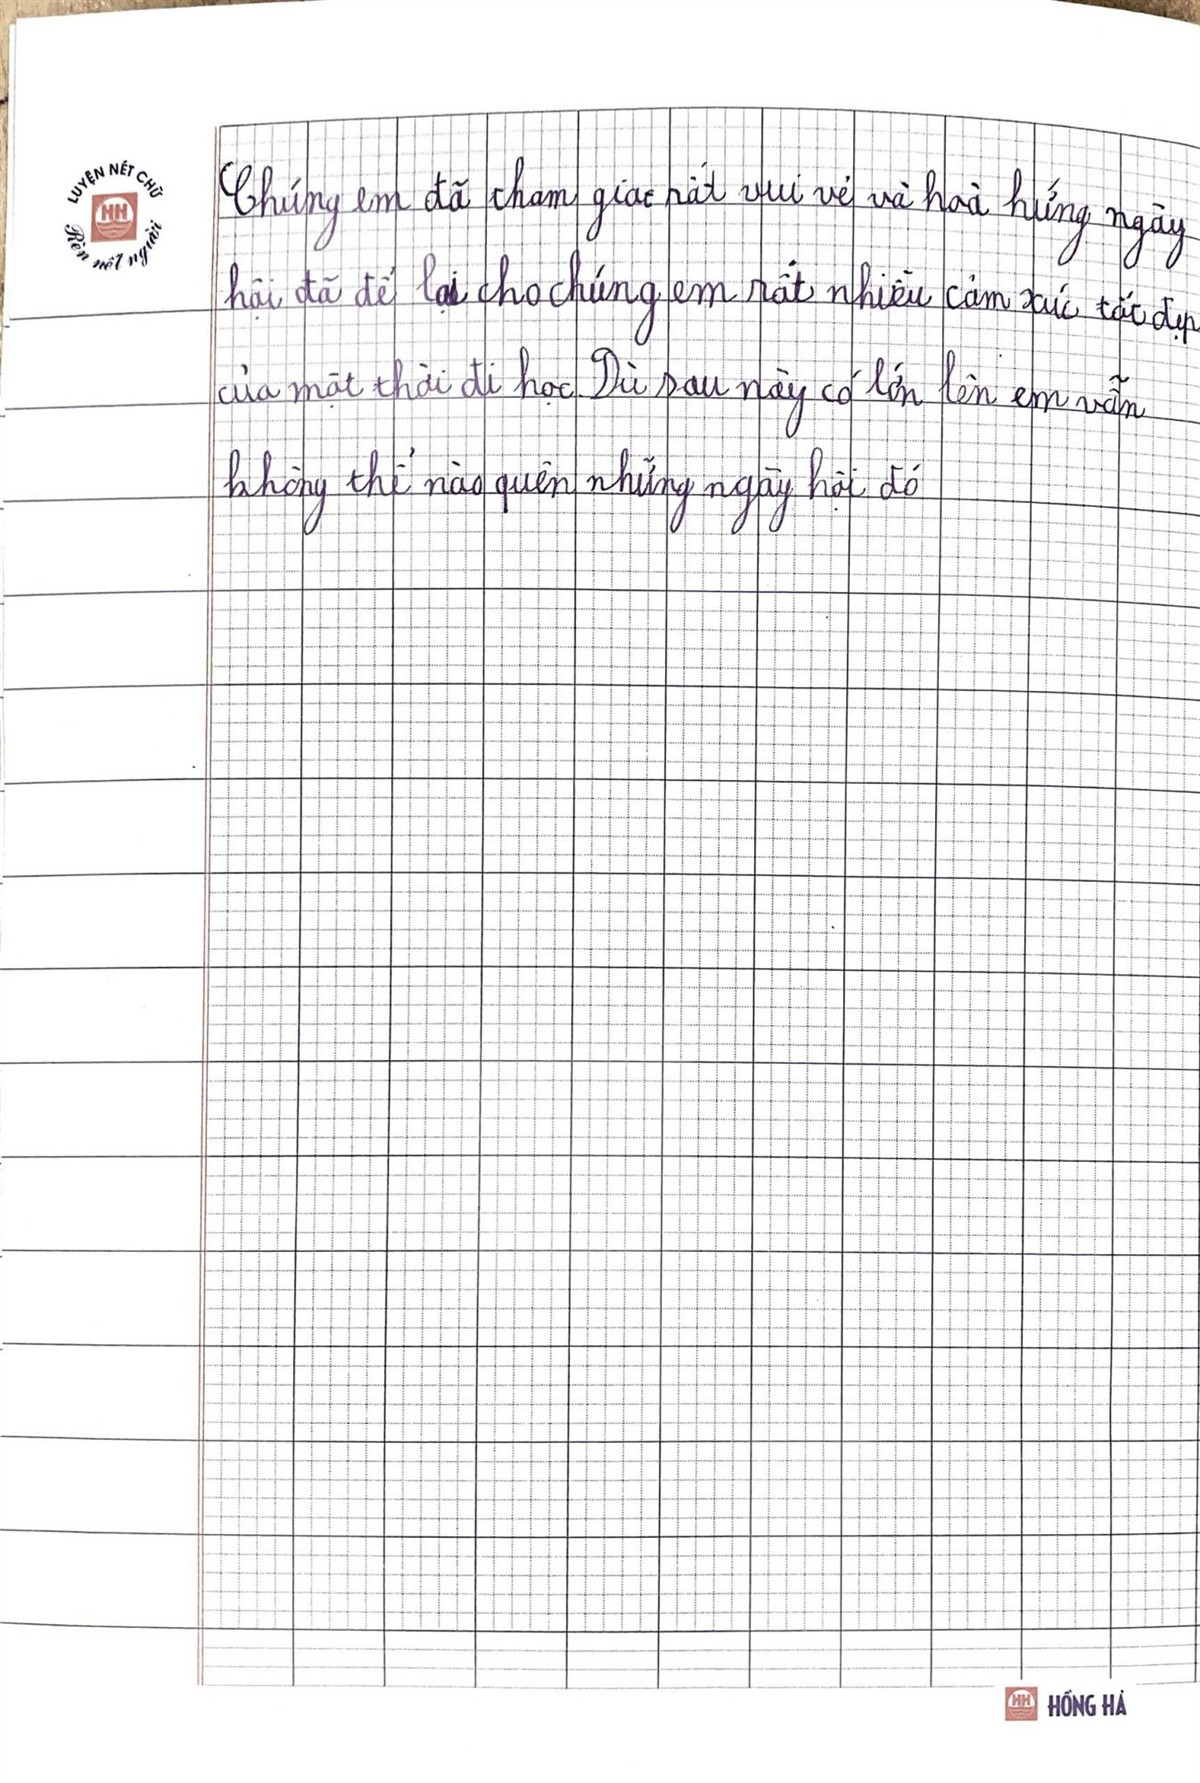 LUYỆN NÉT CHỮ
HH
Rèn nết người
Chúng em đã cham giac rất vui vẻ và hoà hứng ngày
hội đã để lại cho chúng em rất nhiều cảm xúc tốt đẹp
của một thời đi học. Dù sau này có lớn lên em vẫn
không thể nào quên những ngày hội đó
HH HỒNG HÀ